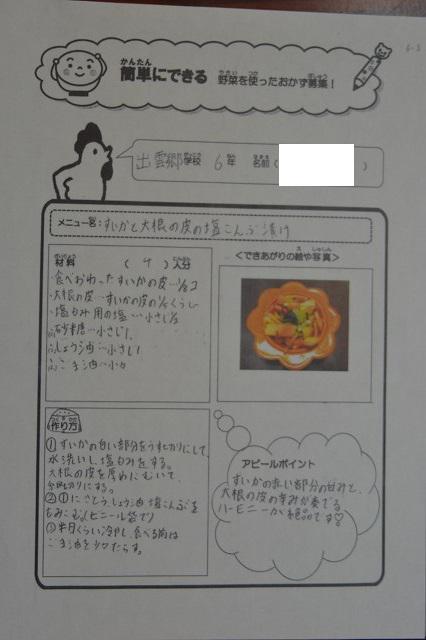 かんたん
簡単にできる 野菜を使ったおかず募集！
出雲郷学校 6年 名前( )
メニュー名：すいかと大根の皮の塩こんぶ漬け
材料 ( 4 )人分
・食べおわったすいかの皮…1/8コ
・大根の皮…すいかの皮の1/2くらい
・塩もみ用の塩…小さじ1/2
☆砂糖…小さじ1
☆しょう油…小さじ1
☆ごま油…小々
＜できあがりの絵や写真＞
作り方
①すいかの白い部分をうす切りにして、
水洗いし、塩もみをする。
大根の皮を厚めにむいて、
②①にさとう、しょう油、塩こんぶを
もみこむ。(ビニール袋で)
③半日くらい冷やし、食べる前に
ごま油を少々たらす。
アピールポイント
すいかの赤い部分の甘みと、
大根の皮の辛みが奏でる
ハーモニーが絶品です♡